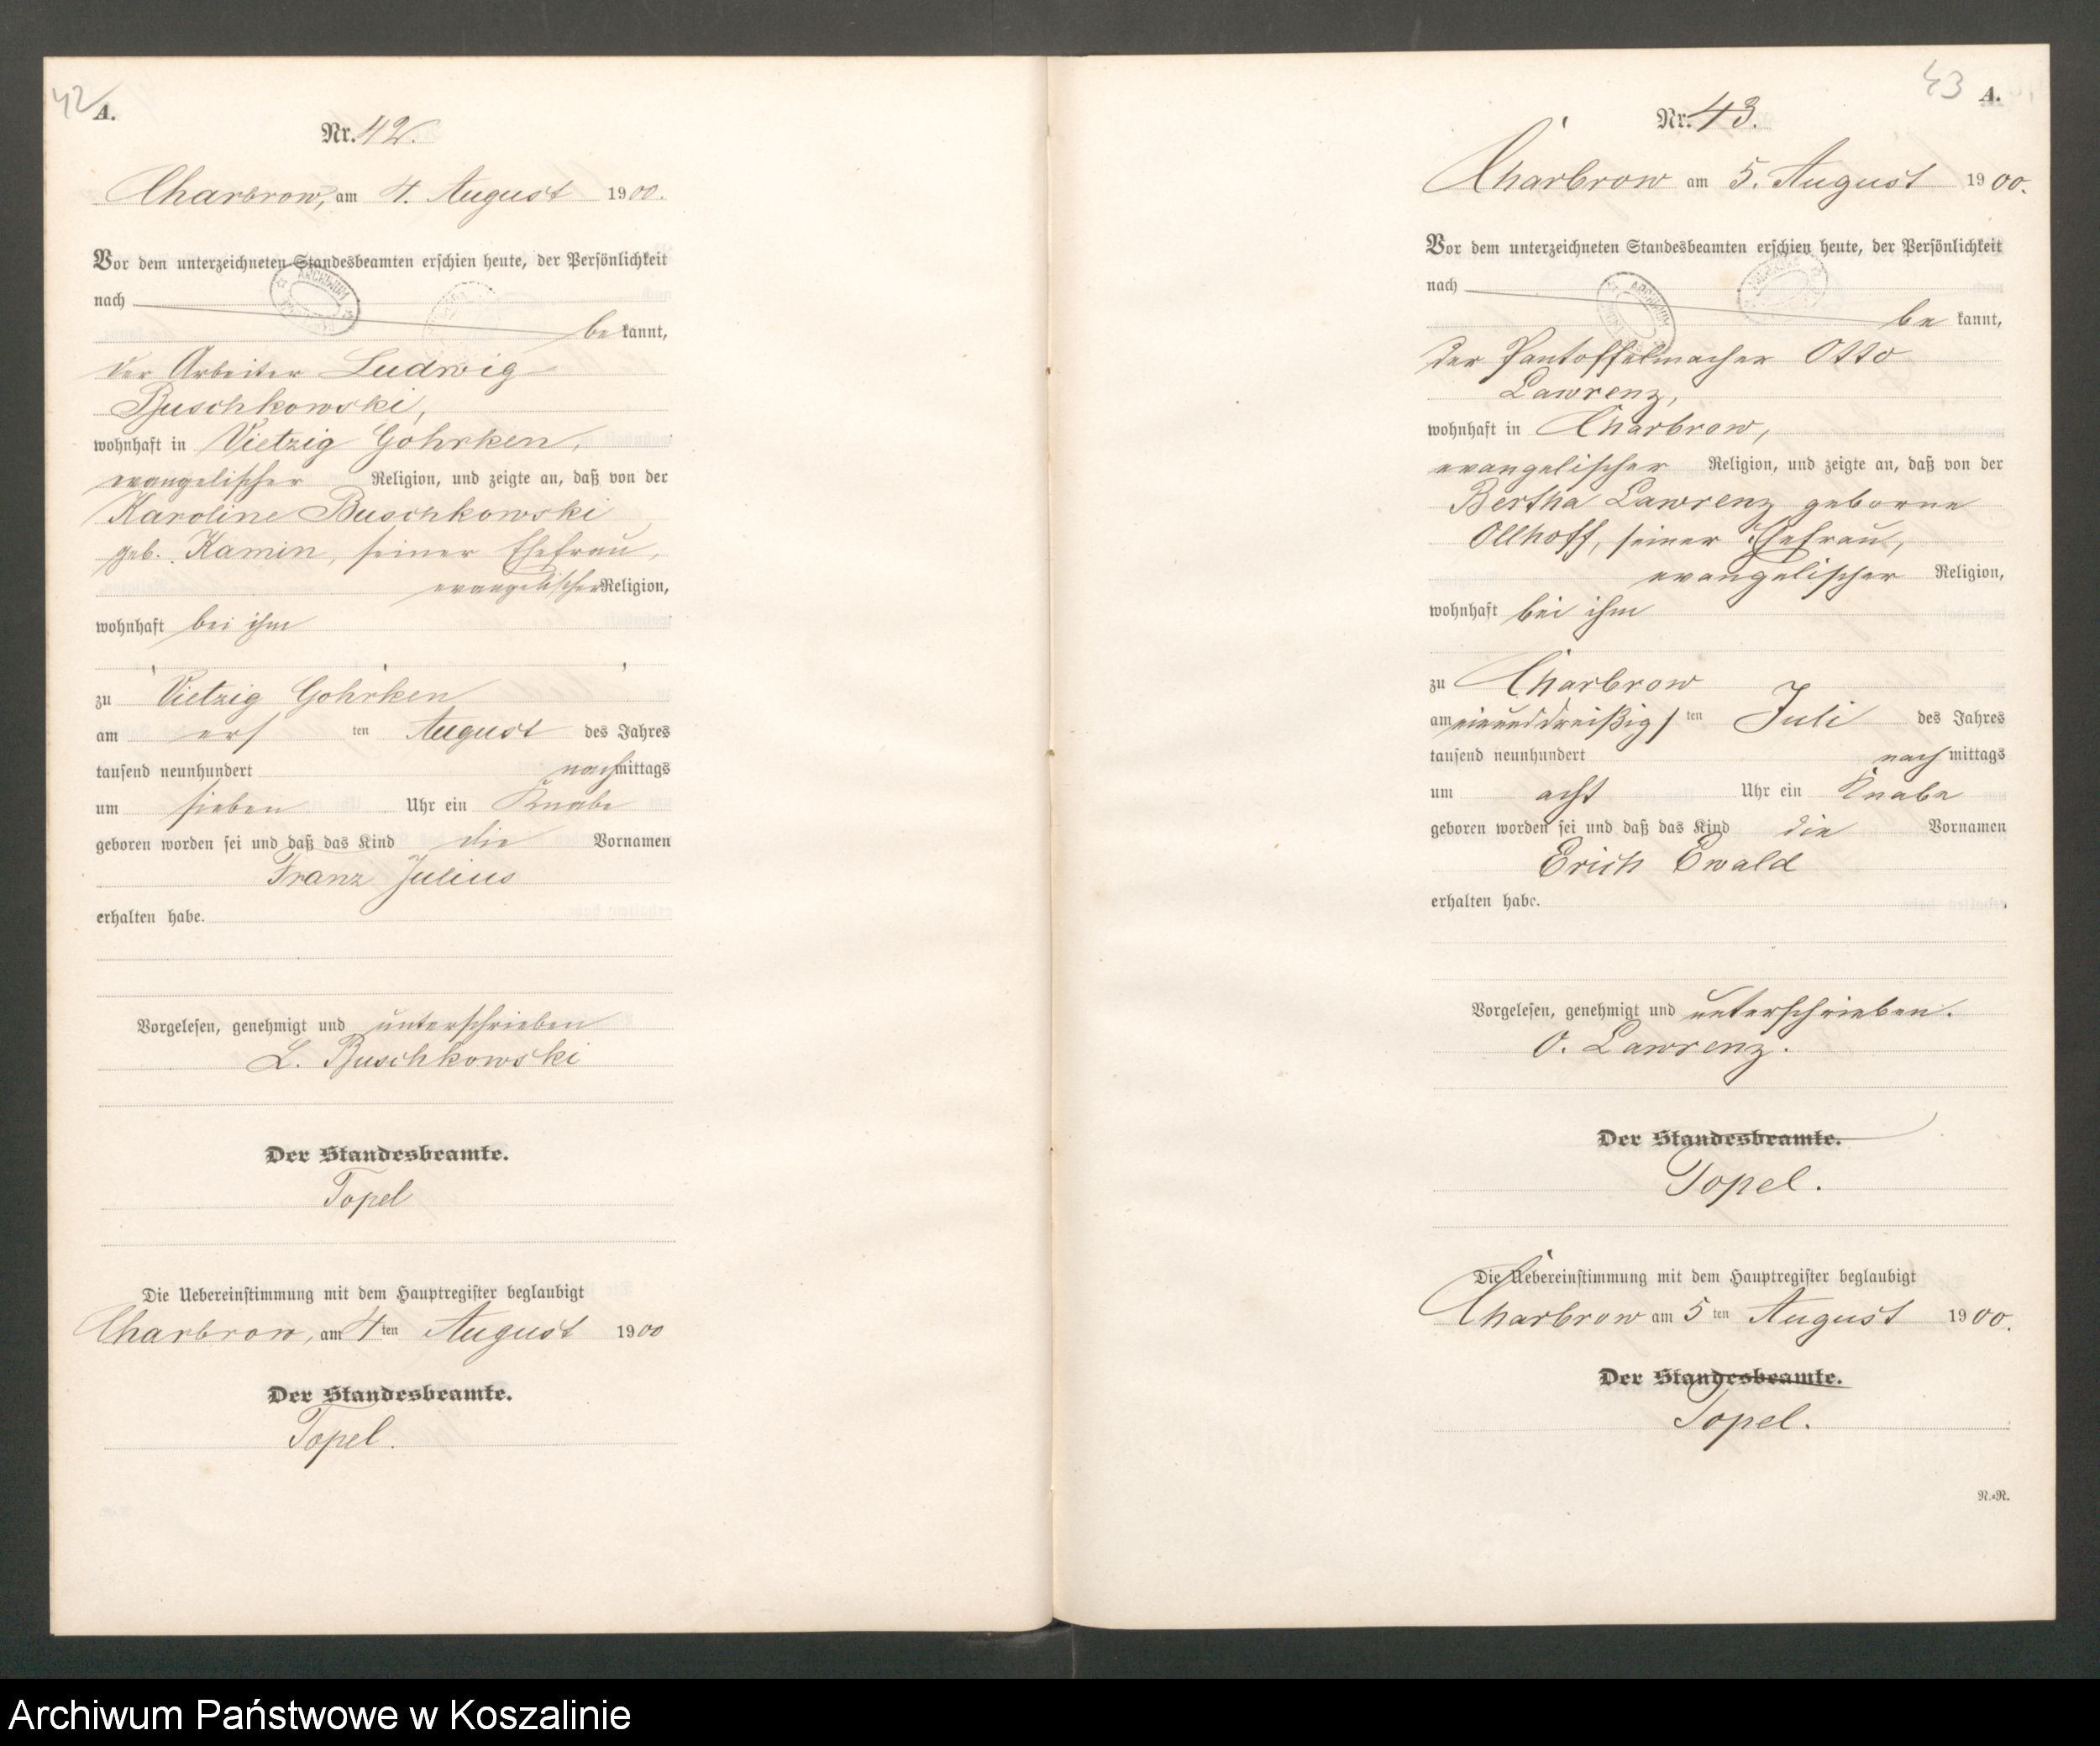 42
A.
Nr. 42.
Charbrow, am 4. August 1900.
Vor dem unterzeichneten Standesbeamten erschien heute, der Persönlichkeit
nach
be kannt,
der Arbeiter Ludwig
Buschkowski,
wohnhaft in Vietzig Gohrken,
evangelischer Religion, und zeigte an, daß von der
Karoline Buschkowski
geb. Kamin, seiner Ehefrau,
evangelischer Religion,
wohnhaft bei ihm
zu Vietzig Gohrken
am ers ten August des Jahres
tausend neunhundert nach mittags
um sieben Uhr ein Knabe
geboren worden sei und daß das Kind die Vornamen
Franz Julius
erhalten habe.
Vorgelesen, genehmigt und unterschrieben
L. Buschkowski
Der Standesbeamte.
Topel
Die Uebereinstimmung mit dem Hauptregister beglaubigt
Charbrow, am 4 ten August 1900
Der Standesbeamte.
Topel.
43
A.
Nr. 43.
Charbrow am 5. August 1900.
Vor dem unterzeichneten Standesbeamten erschien heute, der Persönlichkeit
nach
be kannt,
der Pantoffelmacher Otto
Lawrenz,
wohnhaft in Charbrow,
evangelischer Religion, und zeigte an, daß von der
Bertha Lawrenz geborne
Ollhoff, seiner Ehefrau,
evangelischer Religion,
wohnhaft bei ihm
zu Charbrow
am einunddreißigs ten Juli des Jahres
tausend neunhundert nach mittags
um acht Uhr ein Knabe
geboren worden sei und daß das Kind die Vornamen
Erich Ewald
erhalten habe.
Vorgelesen, genehmigt und unterschrieben.
O. Lawrenz.
Der Standesbeamte.
Topel.
Die Uebereinstimmung mit dem Hauptregister beglaubigt
Charbrow am 5 ten August 1900.
Der Standesbeamte.
Topel.
N.=R.
Archiwum Państwowe w Koszalinie